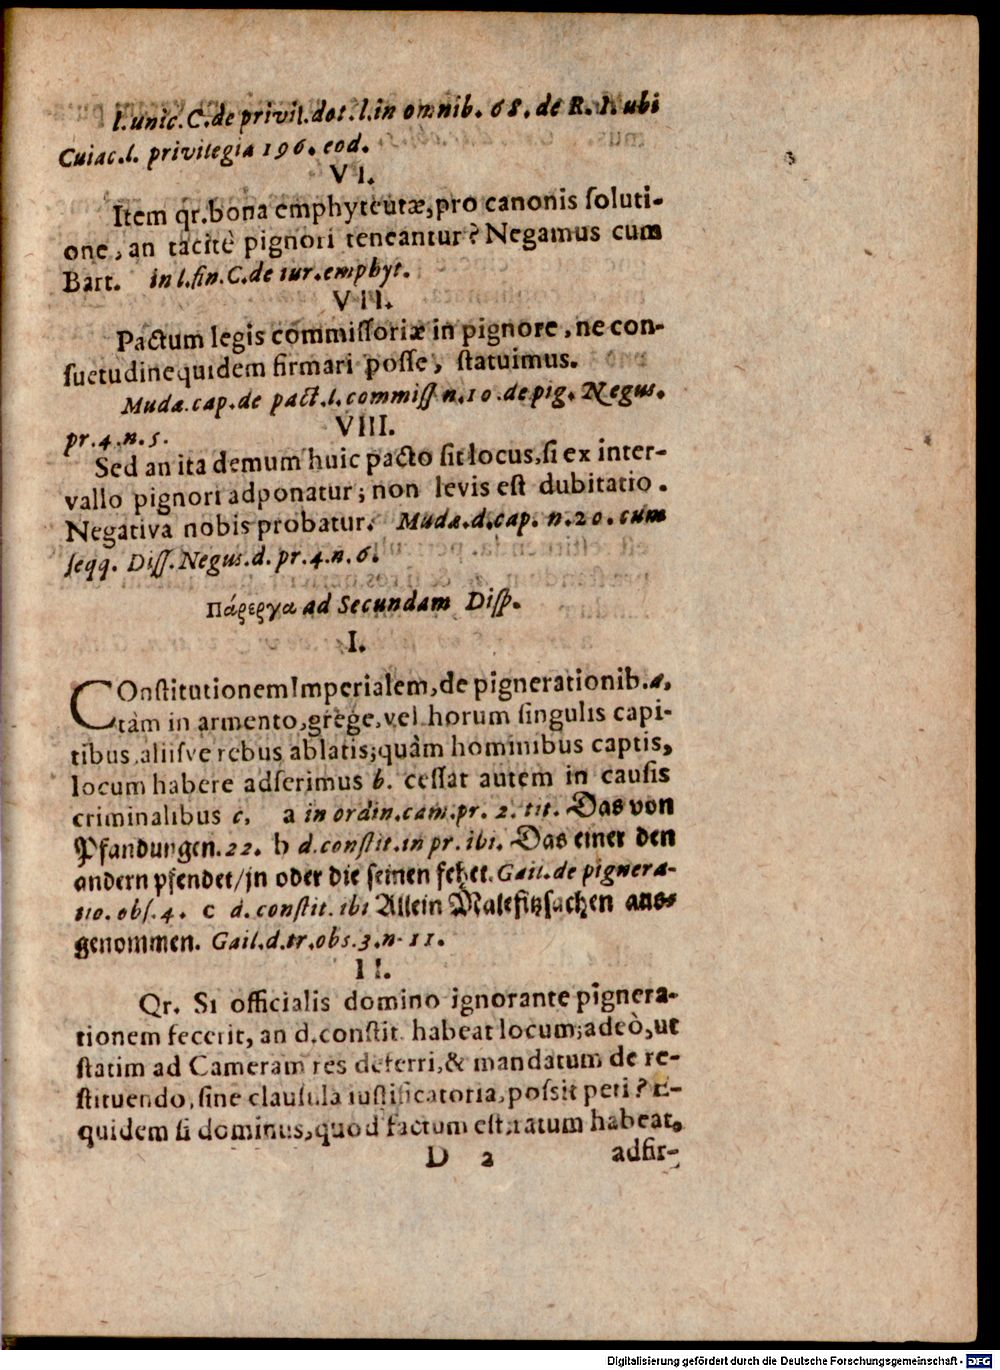 l.unic.C.de privil.dot.l.in omnib. 68. de R. I. ubi
Cuiac.l. privilegia 196. eod.
VI.
Item qr.bona emphyteutæ,pro canonis ſoluti-
one, an tacitè pignori teneantur? Negamus cum
Bart. in l.fin.C.de iur.emphyt.
VII.
Pactum legis commiſſoriæ in pignore, ne con-
ſuetudine quidem firmari poſſe, ſtatuimus.
Muda.cap.de pact.l.commiſſ n.10.de pig. Negus.
pr.4.n.5.
VIII.
Sed an ita demum huic pacto ſit locus,ſi ex inter-
vallo pignori adponatur; non levis eſt dubitatio.
Negativa nobis probatur. Muda.d.cap. n.20. cum
ſeqq. Diſſ. Negus.d. pr.4.n.6.
Πάρεργα ad Secundam Diſp.
I.
COnſtitutionem Imperialem, de pignerationib.a,
tàm in armento,grege,vel horum ſingulis capi-
tibus,aliiſve rebus ablatis;quàm hominibus captis,
locum habere adſerimus b. ceſſat autem in cauſis
criminalibus c, a in ordin.cam.pr. 2. tit. Das von
Pfandungen.22. b d.conſtit.in pr. ibi. Das einer den
andern pfendet/jn oder die ſeinen fehet. Gail.de pignera-
tio. obſ.4. c d. conſtit. ibi Allein Malefitzſachen aus-
genommen. Gail.d.tr.obs.3.n.11.
II.
Qr. Si officialis domino ignorante pignera-
tionem fecerit, an d.conſtit. habeat locum;adeò,ut
ſtatim ad Cameram res deferri,& mandatum de re-
ſtituendo, ſine clauſula iuſtificatoria, poſſit peti? E-
quidem ſi dominus,quod factum eſt,ratum habeat,
D 2 adfir-
Digitalisierung gefördert durch die Deutsche Forschungsgemeinschaft - DFG